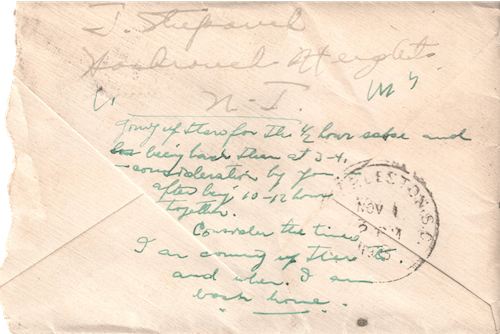 J. Shepard
Hasbrouck Heights.
N-J.
Going up there for the 1/2 hour and
being back there at 3-4.
consideration by you
after being 10-12 hours
together.
Consider the times
I am coming up there
and when I am
back home.
LESTON, S.C.
NOV 1